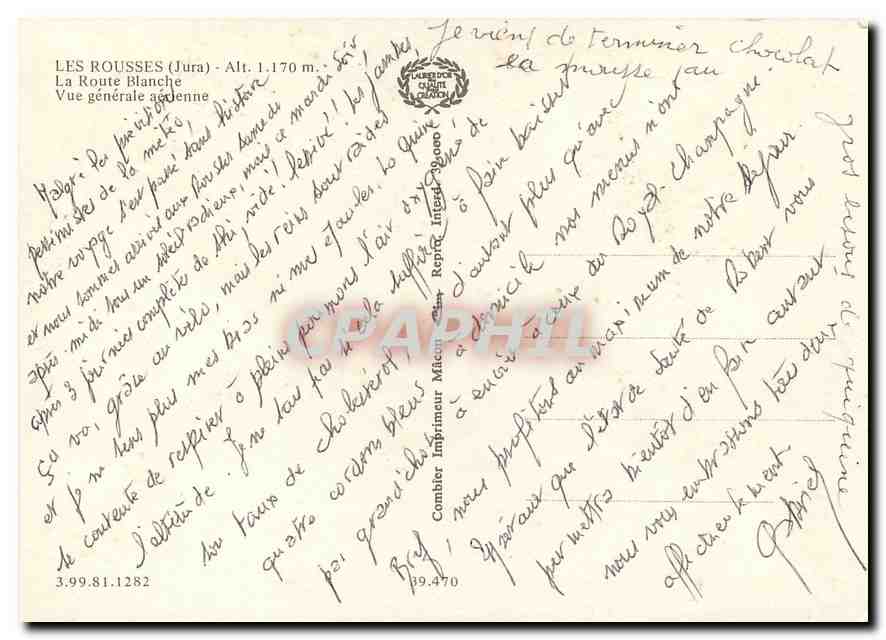 LES ROUSSES (Jura) - Alt. 1.170 m.
La Route Blanche
Vue générale aérienne
LAURIER D'OR
QUALITÉ
CRÉATION
Je viens de terminer
la mousse au chocolat
Malgré les prévisions
pessimistes de la météo,
notre voyage s'est passé sans histoire
et nous sommes arrivés aux Rousses samedi
après-midi sous un soleil radieux, mais ce mardi soir
après 3 journées complètes de ski, vidé! lessivé!! les jambes,
ça va, grâce au vélo, mais les reins sont raides
et je ne sens plus mes bras ni me épaules. La
se contente de respirer à pleins poumons l'air oxygéné de
l'altitude. Je ne sais pas si cela suffira à faire baisser
son taux de cholestérol, d'autant plus qu'avec
quatre cordons bleus à domicile nos menus n'ont
pas grand'chose à envier à ceux du Royal-Champagne!
Bref, nous profitons au maximum de notre séjour.
Espérant que l'état de santé de Robert vous
permettra bientôt d'en faire autant
nous vous embrassons très
affectueusement
gros bisous de
Combier Imprimeur Mâcon Repro. Interd. 39.000
3.99.81.1282
39.470
CPAPHIL